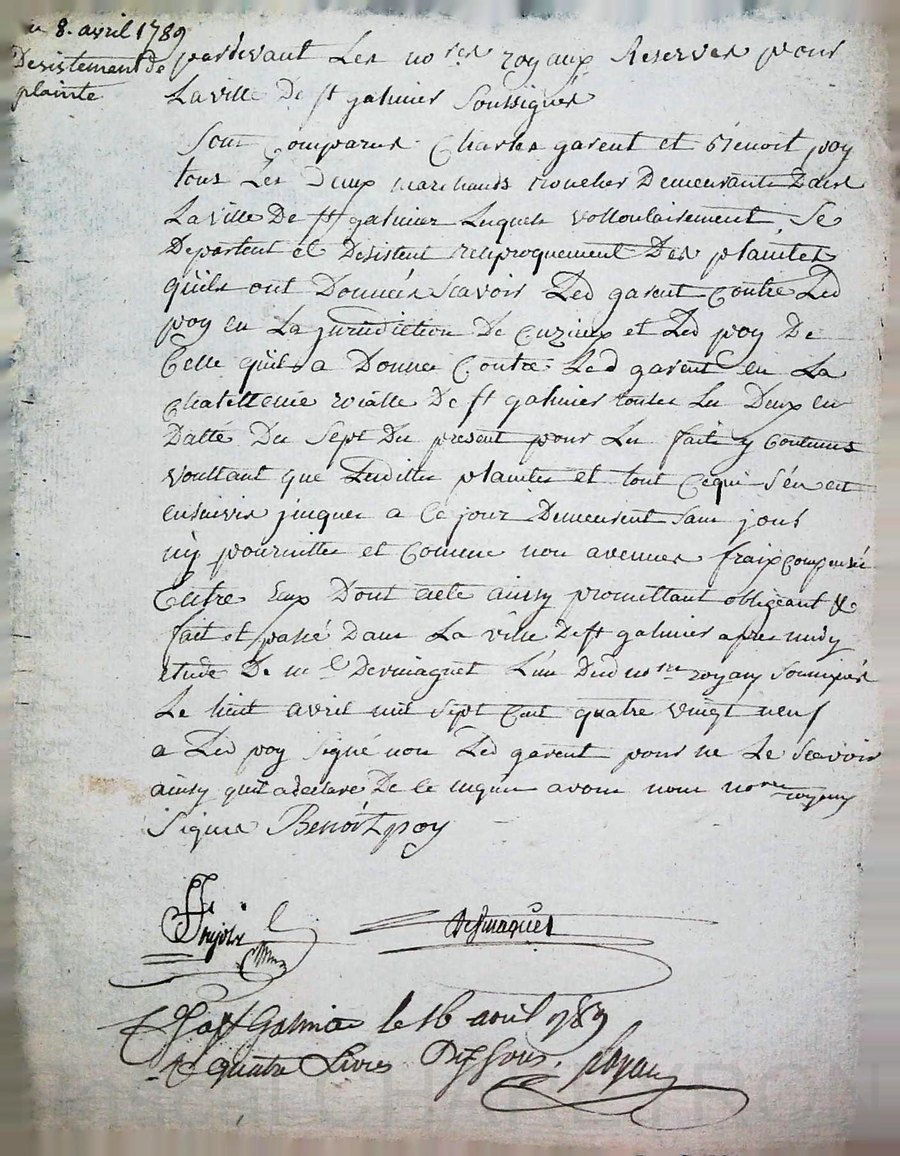 8. avril 1789
Desistement de
plainte
pardevant Les no.res royaux Reservés pour
La ville De st galmier Soussignés
Sont Comparus Charles garent et Benoit poy
tous Les Deux marchands Demeurants Dans
La ville De st galmier Lesquels vollontairement Se
Departent et Desistent reciproquement Des plaintes
quils ont Donnéés Scavoir Led garent Contre Led
poy en La jurisdiction De Cuzieux et Led poy De
Celle quil a Donné Contre Led garent en La
Chatellenie roialle De st galmier toutes Les Deux en
Datte Du Sept Du present pour Les faits y Contenus
voullant que Lesdittes plaintes et tout Cequi S'en est
ensuivis jusques a Ce jour Demeurent Sans
ny poursuittes et Comme non avenues fraix Compensés
Entre Eux Dont acte ainsy promettant obligeant &
fait et passé Dans La ville De st galmier apres midy
étude De me L'un Desd no.res royaux Soussignés
Le huit avril mil Sept Cent quatre vingt neuf
a Led poy Signé non Led garent pour ne Le Scavoir
ainsy quil a declaré De Ce enquis avons nous no.res royaux
Signés Benoit poy
Desmaquet
a st Galmier le 16 avril 1789
quatre Livres Dix Sous.